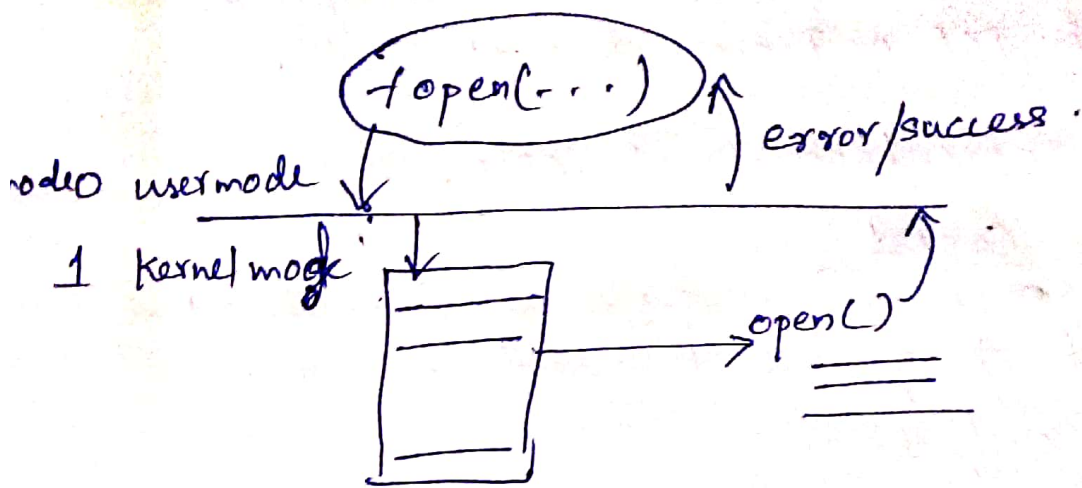 fopen(...)
error/success.
mode 0 usermode
1 Kernel mode
open()